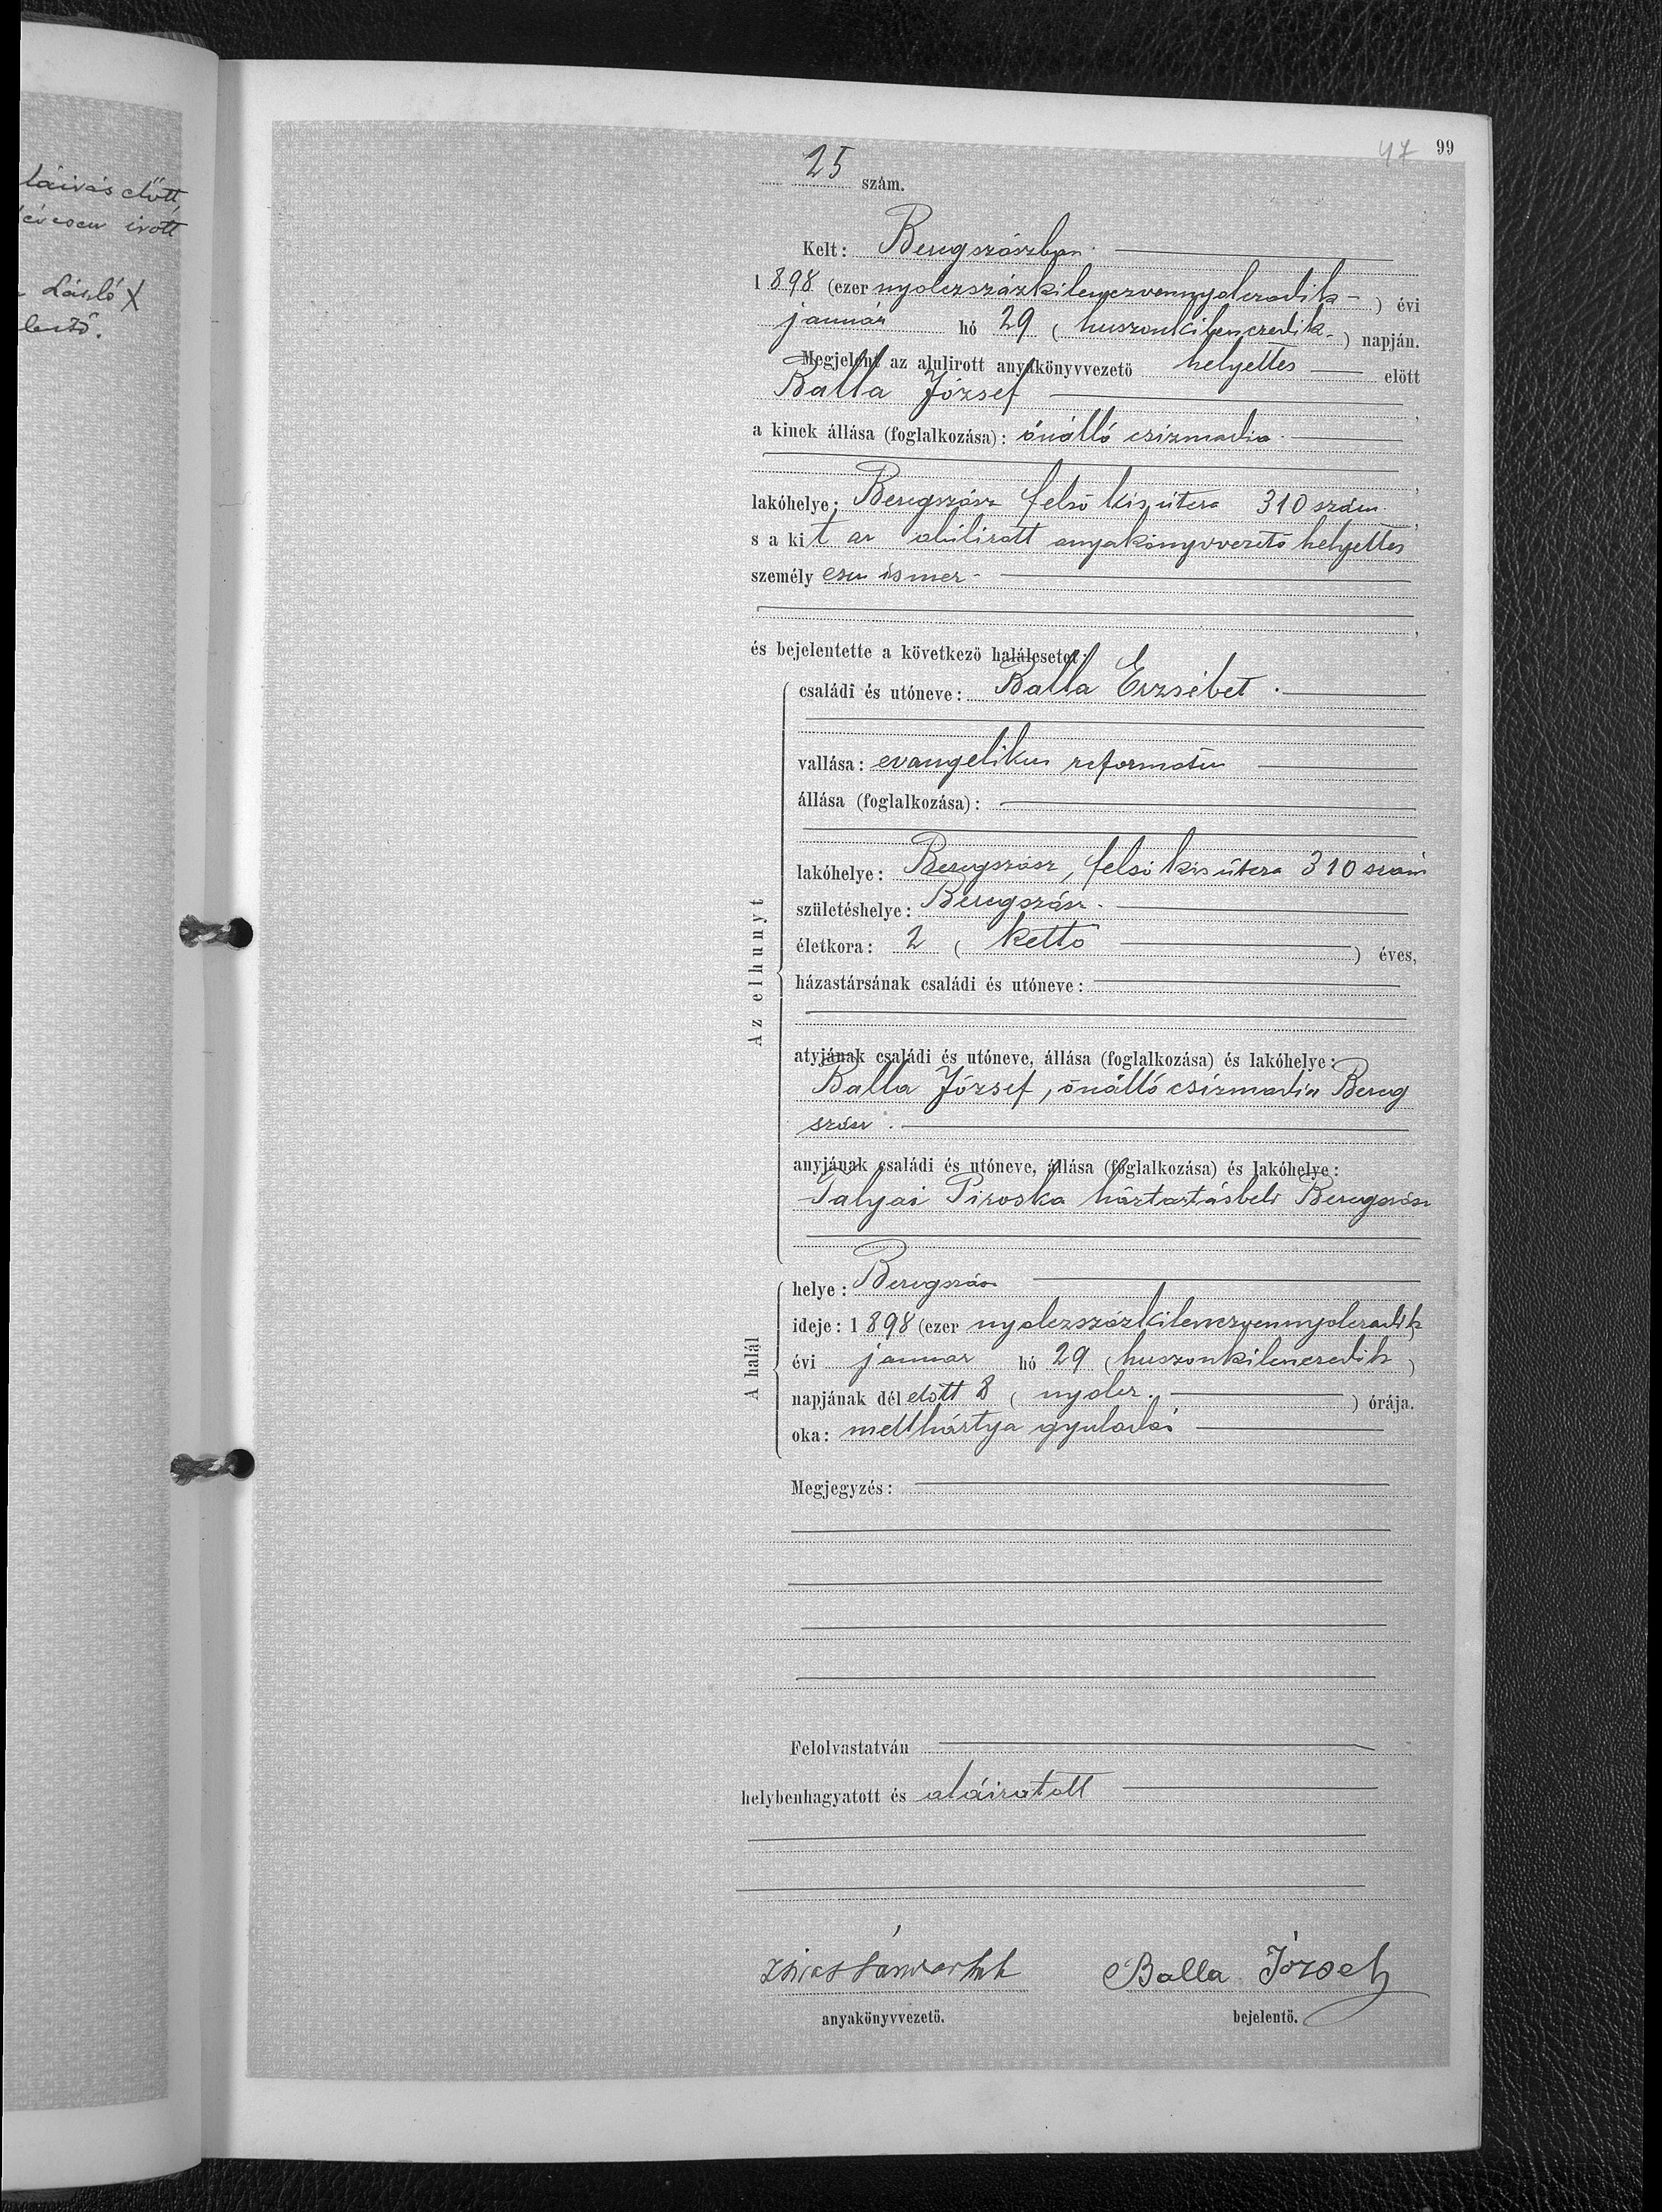 láirás előtt,
írott
László X
lentő.
47 99
25 szám.
Kelt: Beregszászban
1898 (ezer nyolczszázkilenczvennyolczadik) évi
január hó 29 (huszonkilenczedik) napján.
Megjelent az alulirott anyakönyvvezető helyettes előtt
Balla József,
a kinek állása (foglalkozása): önálló csizmadia
lakóhelye: Beregszász felső kis útcza 310 szám,
s a kit az alúlirott anyakönyvvezető helyettes
személyesen ismer
és bejelentette a következő halálesetet:
Az elhunyt
családi és utóneve: Balla Erzsébet
vallása: evangelikus református
állása (foglalkozása):
lakóhelye: Beregszász, felső kis útcza 310 szám
születéshelye: Beregszász
életkora: 2 (kettő) éves,
házastársának családi és utóneve:
atyjának családi és utóneve, állása (foglalkozása) és lakóhelye:
Balla József, önálló csizmadia Bereg
szász
anyjának családi és utóneve, állása (foglalkozása) és lakóhelye:
Talyai Piroska háztartásbeli Beregszász
A halál
helye: Beregszász
ideje: 1898 (ezer nyolczszázkilenczvennyolczadik)
évi január hó 29 (huszonkilenczedik)
napjának dél előtt 8 (nyolcz) órája.
oka: mellhártya gyuladás
Megjegyzés:
Felolvastatván
helybenhagyatott és aláiratott
Balla József
anyakönyvvezető. bejelentő.